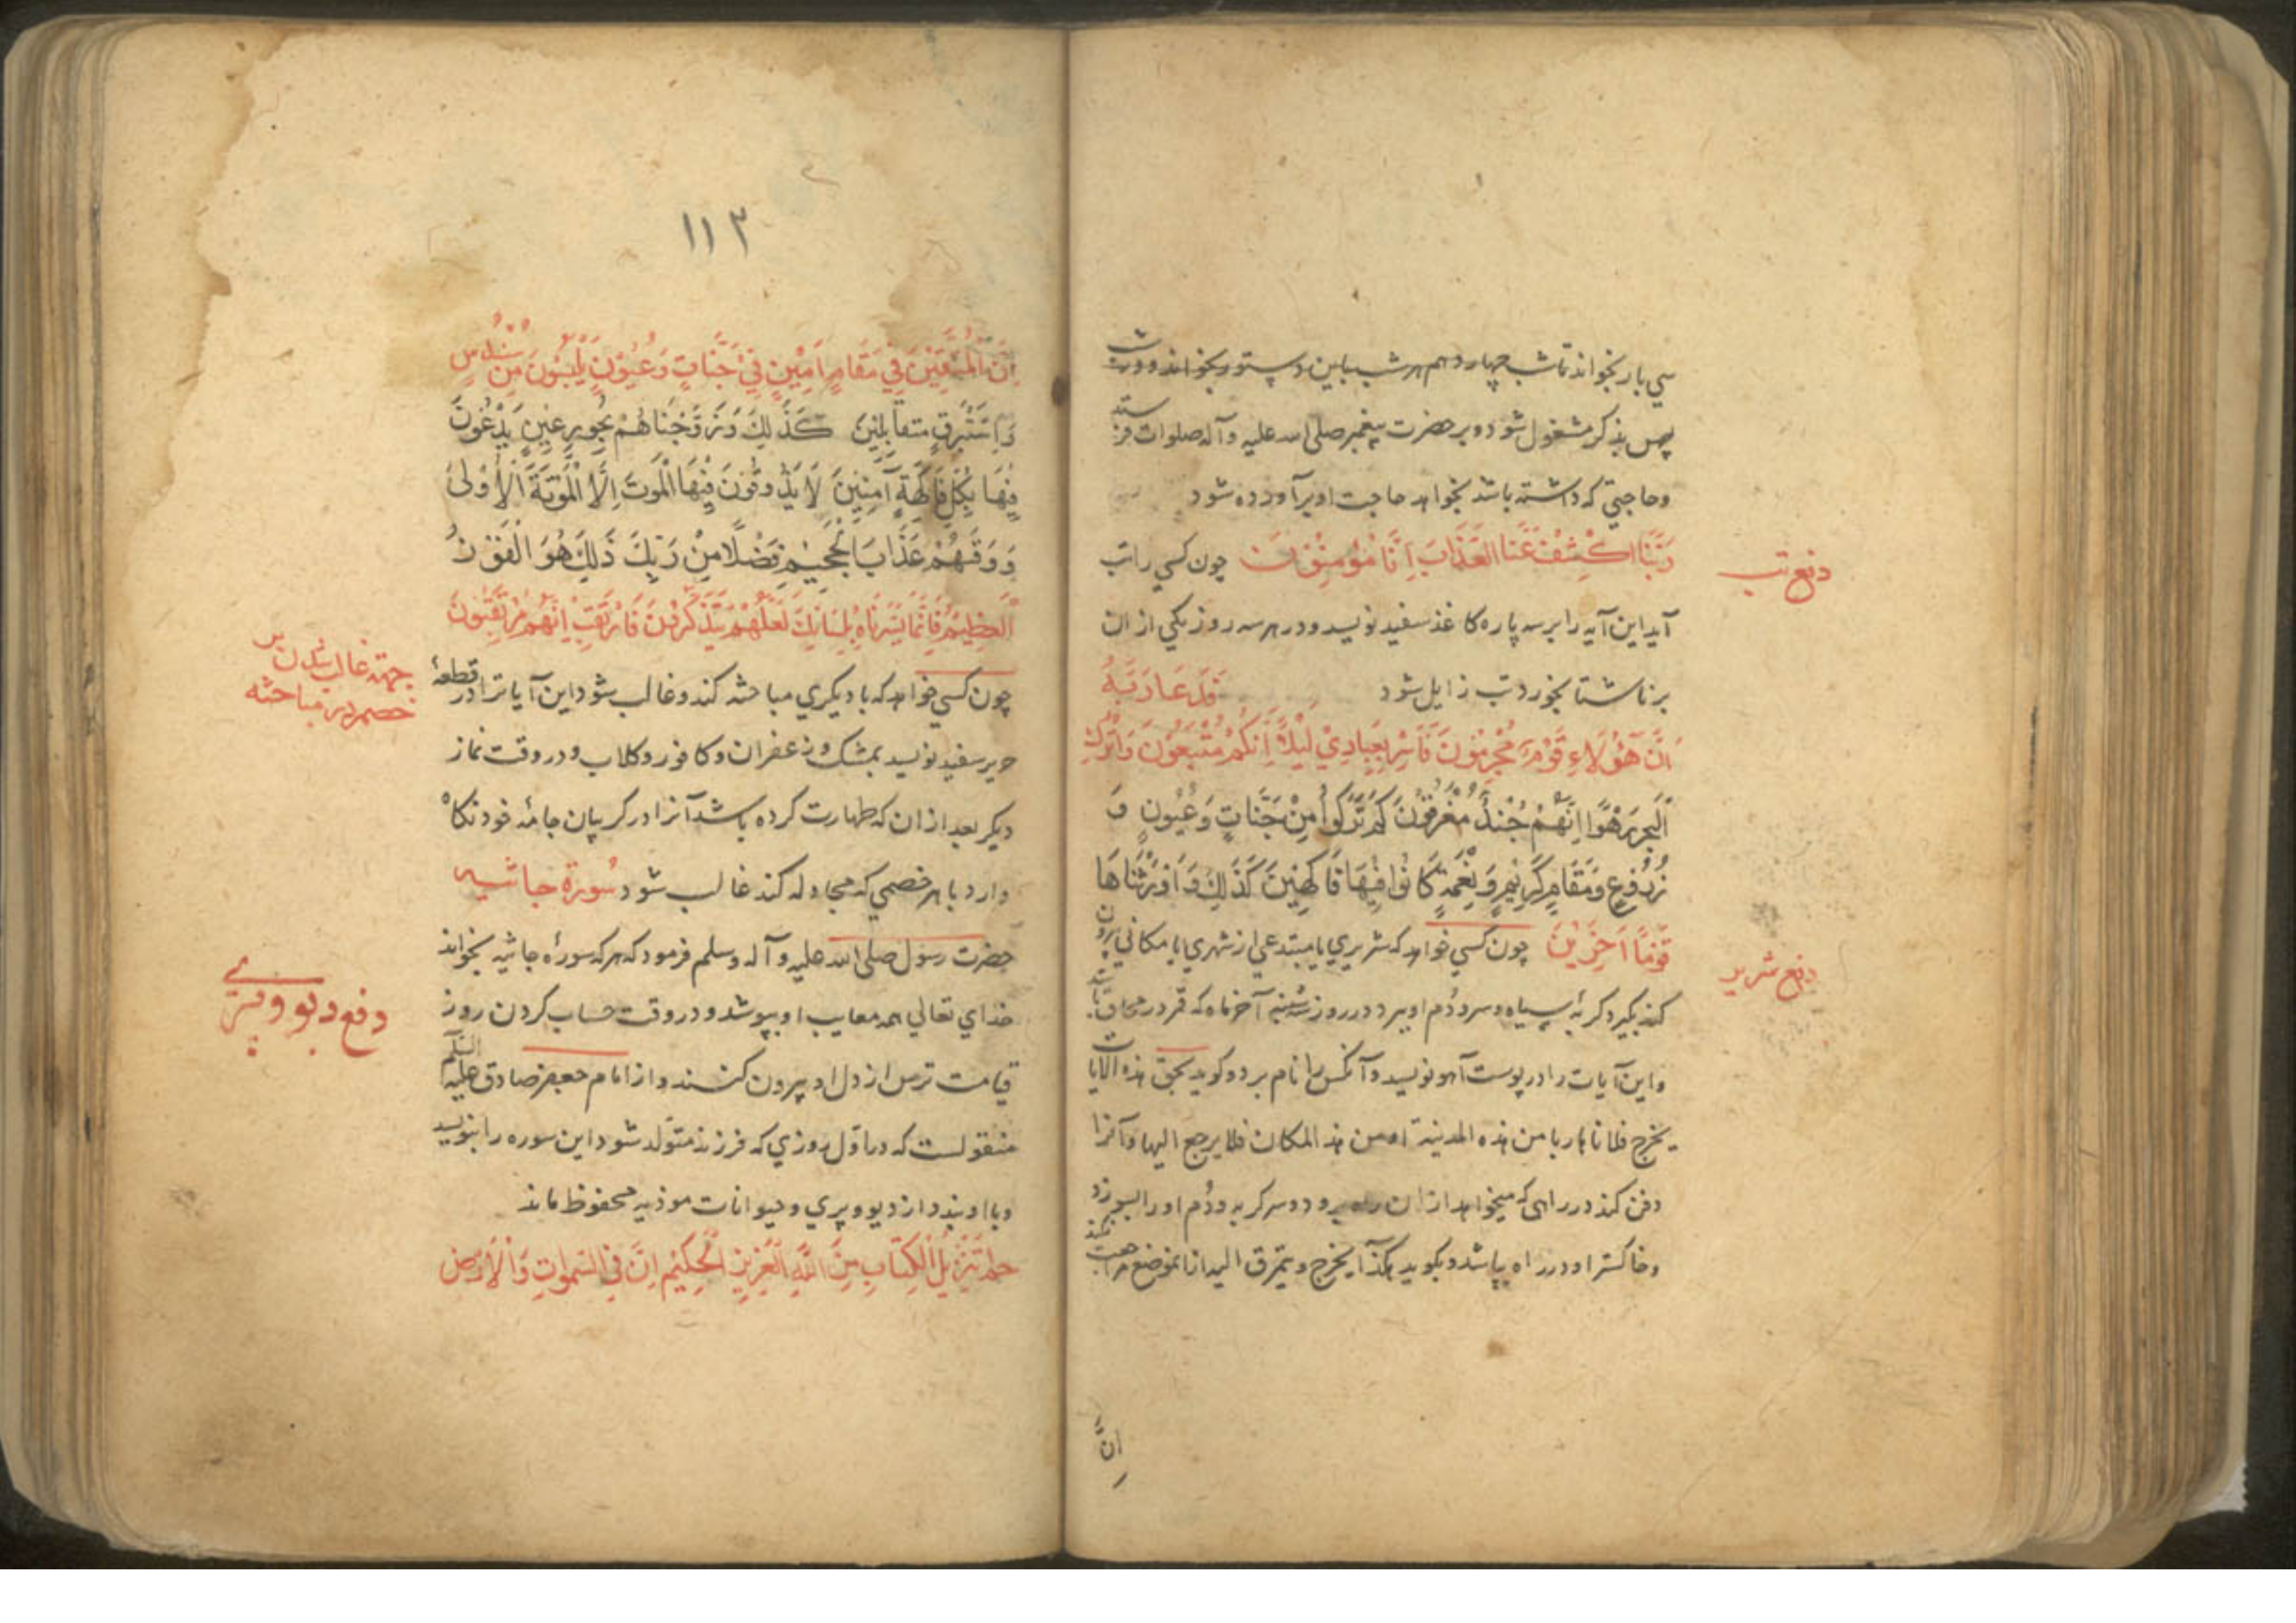 سي بار بخواند تا شب چهاردهم هر شب باين دستور بخواند و در شب
پس بذكر مشغول شود و بر حضرت پيغمبر صلى الله عليه وآله صلوات فرستد
وحاجتي كه داشته باشد بخواهد حاجت او برآورده شود
رَبَّنَا اكْشِفْ عَنَّا الْعَذَابَ اِنَّا مُؤْمِنُوْنَ چون كسي را تب
دفع تب
آيد اين آيه را بر سه پاره كاغذ سفيد نويسد و در هر سه روز يكي از ان
بر ناشتا بخورد تب زايل شود فَدَعَا رَبَّهُ
اَنَّ هٰؤُلَاءِ قَوْمٌ مُجْرِمُونَ فَاَسْرِ بِعِبَادِيْ لَيْلًا اِنَّكُمْ مُتَّبَعُوْنَ وَاتْرُكِ
الْبَحْرَ رَهْوًا اِنَّهُمْ جُنْدٌ مُغْرَقُوْنَ كَمْ تَرَكُوا مِنْ جَنَّاتٍ وَعُيُونٍ وَ
زُرُوْعٍ وَمَقَامٍ كَرِيْمٍ وَنَعْمَةٍ كَانُوا فِيْهَا فَاكِهِيْنَ كَذَلِكَ وَاَوْرَثْنَاهَا
قَوْمًا اٰخَرِيْنَ چون كسي خواهد كه شريري يا مبتدعي از شهري يا مكاني بيرون
دفع شرير
كند بگيرد گربهٔ سياه و سر و دُم او ببرد در روز شنبه آخر ماه كه قمر در محاق باشد
و اين آيات را در پوست آهو نويسد و آنكس را نام برد و كويد بحق هذه الآيات
يخرج فلانا هاربا من هذه المدينة او من هذ المكان فلا يرجع اليها و آنرا
دفن كند در راهى كه ميخواهد از ان راه برود و سر كربه و دُم او را بسوزد
و خاكستر او در راه بپاشد و بكويد هكذا يخرج و يتفرق
اِنَّ
١١٣
اِنَّ الْمُتَّقِيْنَ فِيْ مَقَامٍ اَمِيْنٍ فِيْ جَنَّاتٍ وَعُيُوْنٍ يَلْبَسُوْنَ مِنْ سُنْدُسٍ
وَاِسْتَبْرَقٍ مُتَقَابِلِيْنَ كَذَلِكَ وَزَوَّجْنَاهُمْ بِحُوْرٍ عِيْنٍ يَدْعُوْنَ
فِيْهَا بِكُلِّ فَاكِهَةٍ آمِنِيْنَ لَا يَذُوْقُوْنَ فِيْهَا الْمَوتَ اِلَّا الْمَوْتَةَ الْاُوْلىٰ
وَوَقٰهُمْ عَذَابَ الْجَحِيْمِ فَضْلًا مِنْ رَبِّكَ ذَلِكَ هُوَ الْفَوْزُ
الْعَظِيْمُ فَاِنَّمَا يَسَّرْنَاهُ بِلِسَانِكَ لَعَلَّهُمْ يَتَذَكَّرُوْنَ فَارْتَقِبْ اِنَّهُمْ مُرْتَقِبُوْنَ
چون كسي خواهد كه با ديكري مباحثه كند و غالب شود اين آيات را در قطعهٔ
جهة غالب شدن بر
خصم در مباحثه
حرير سفيد نويسد بمشك و زعفران و كافور و كلاب و در وقت نماز
ديكر بعد از ان كه طهارت كرده باشد آنرا در كريبان جامهٔ خود نكاه
دارد با هر خصمي كه مجادله كند غالب شود سُورة جاثيه
حضرت رسول صلى الله عليه وآله وسلم فرمود كه هر كه سورهٔ جاثيه بخواند
خداي تعالي همه معايب او بپوشد و در وقت حساب كردن روز
دفع ديو و پري
قيامت ترس از دل او بيرون كنند و از امام جعفر صادق عليه السلام
منقولست كه در اوّل روزي كه فرزند متولد شود اين سوره را بنويسد
و با او بندد از ديو و پري و حيوانات موذيه محفوظ ماند
حٰم تَنْزِيْلُ الْكِتَابِ مِنَ اللّٰهِ الْعَزِيْزِ الْحَكِيْمِ اِنَّ فِي السَّمٰوَاتِ وَالْاَرْضِ